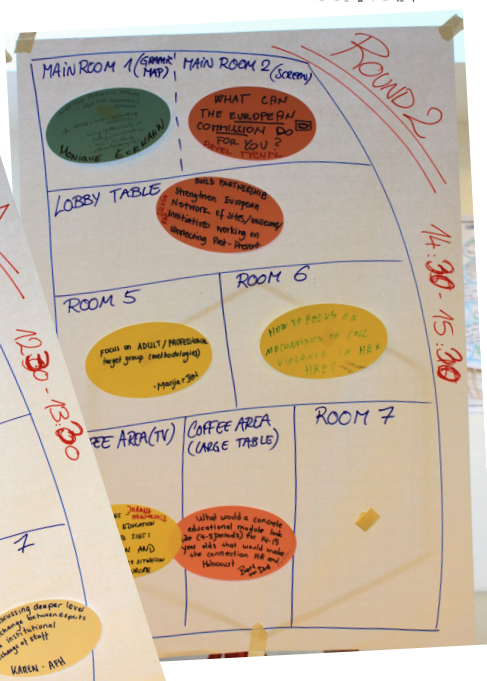 ROUND 2
MAIN ROOM 1 (GRAPHIC
MAP)
MONIQUE ECKMANN
MAIN ROOM 2 (SCREEN)
WHAT CAN
THE EUROPEAN
COMMISSION DO
FOR YOU?
PAVEL TYCHTL
14:30 - 15:30
LOBBY TABLE
BUILD PARTNERSHIP
Strengthen European
Network of sites/museums/
initiatives working on
connecting Past-Present
ROOM 5
FOCUS on ADULT/PROFESSIONAL
target group (methodologies)
ROOM 6
HOW TO FOCUS ON
MECHANISMS OF
VIOLENCE IN HER
HRE?
EE AREA (TV)
EDUCATION
AND
SITUATION
ROPE
COFFEE AREA
(LARGE TABLE)
What would a concrete
educational module look
like (4-5 periods) for 14-15
year olds that would make
the connection HR and
Holocaust
ROOM 7
1230 - 13:30
7
scussing deeper level
change between experts
institutional
change of staff
KAREN - AFH